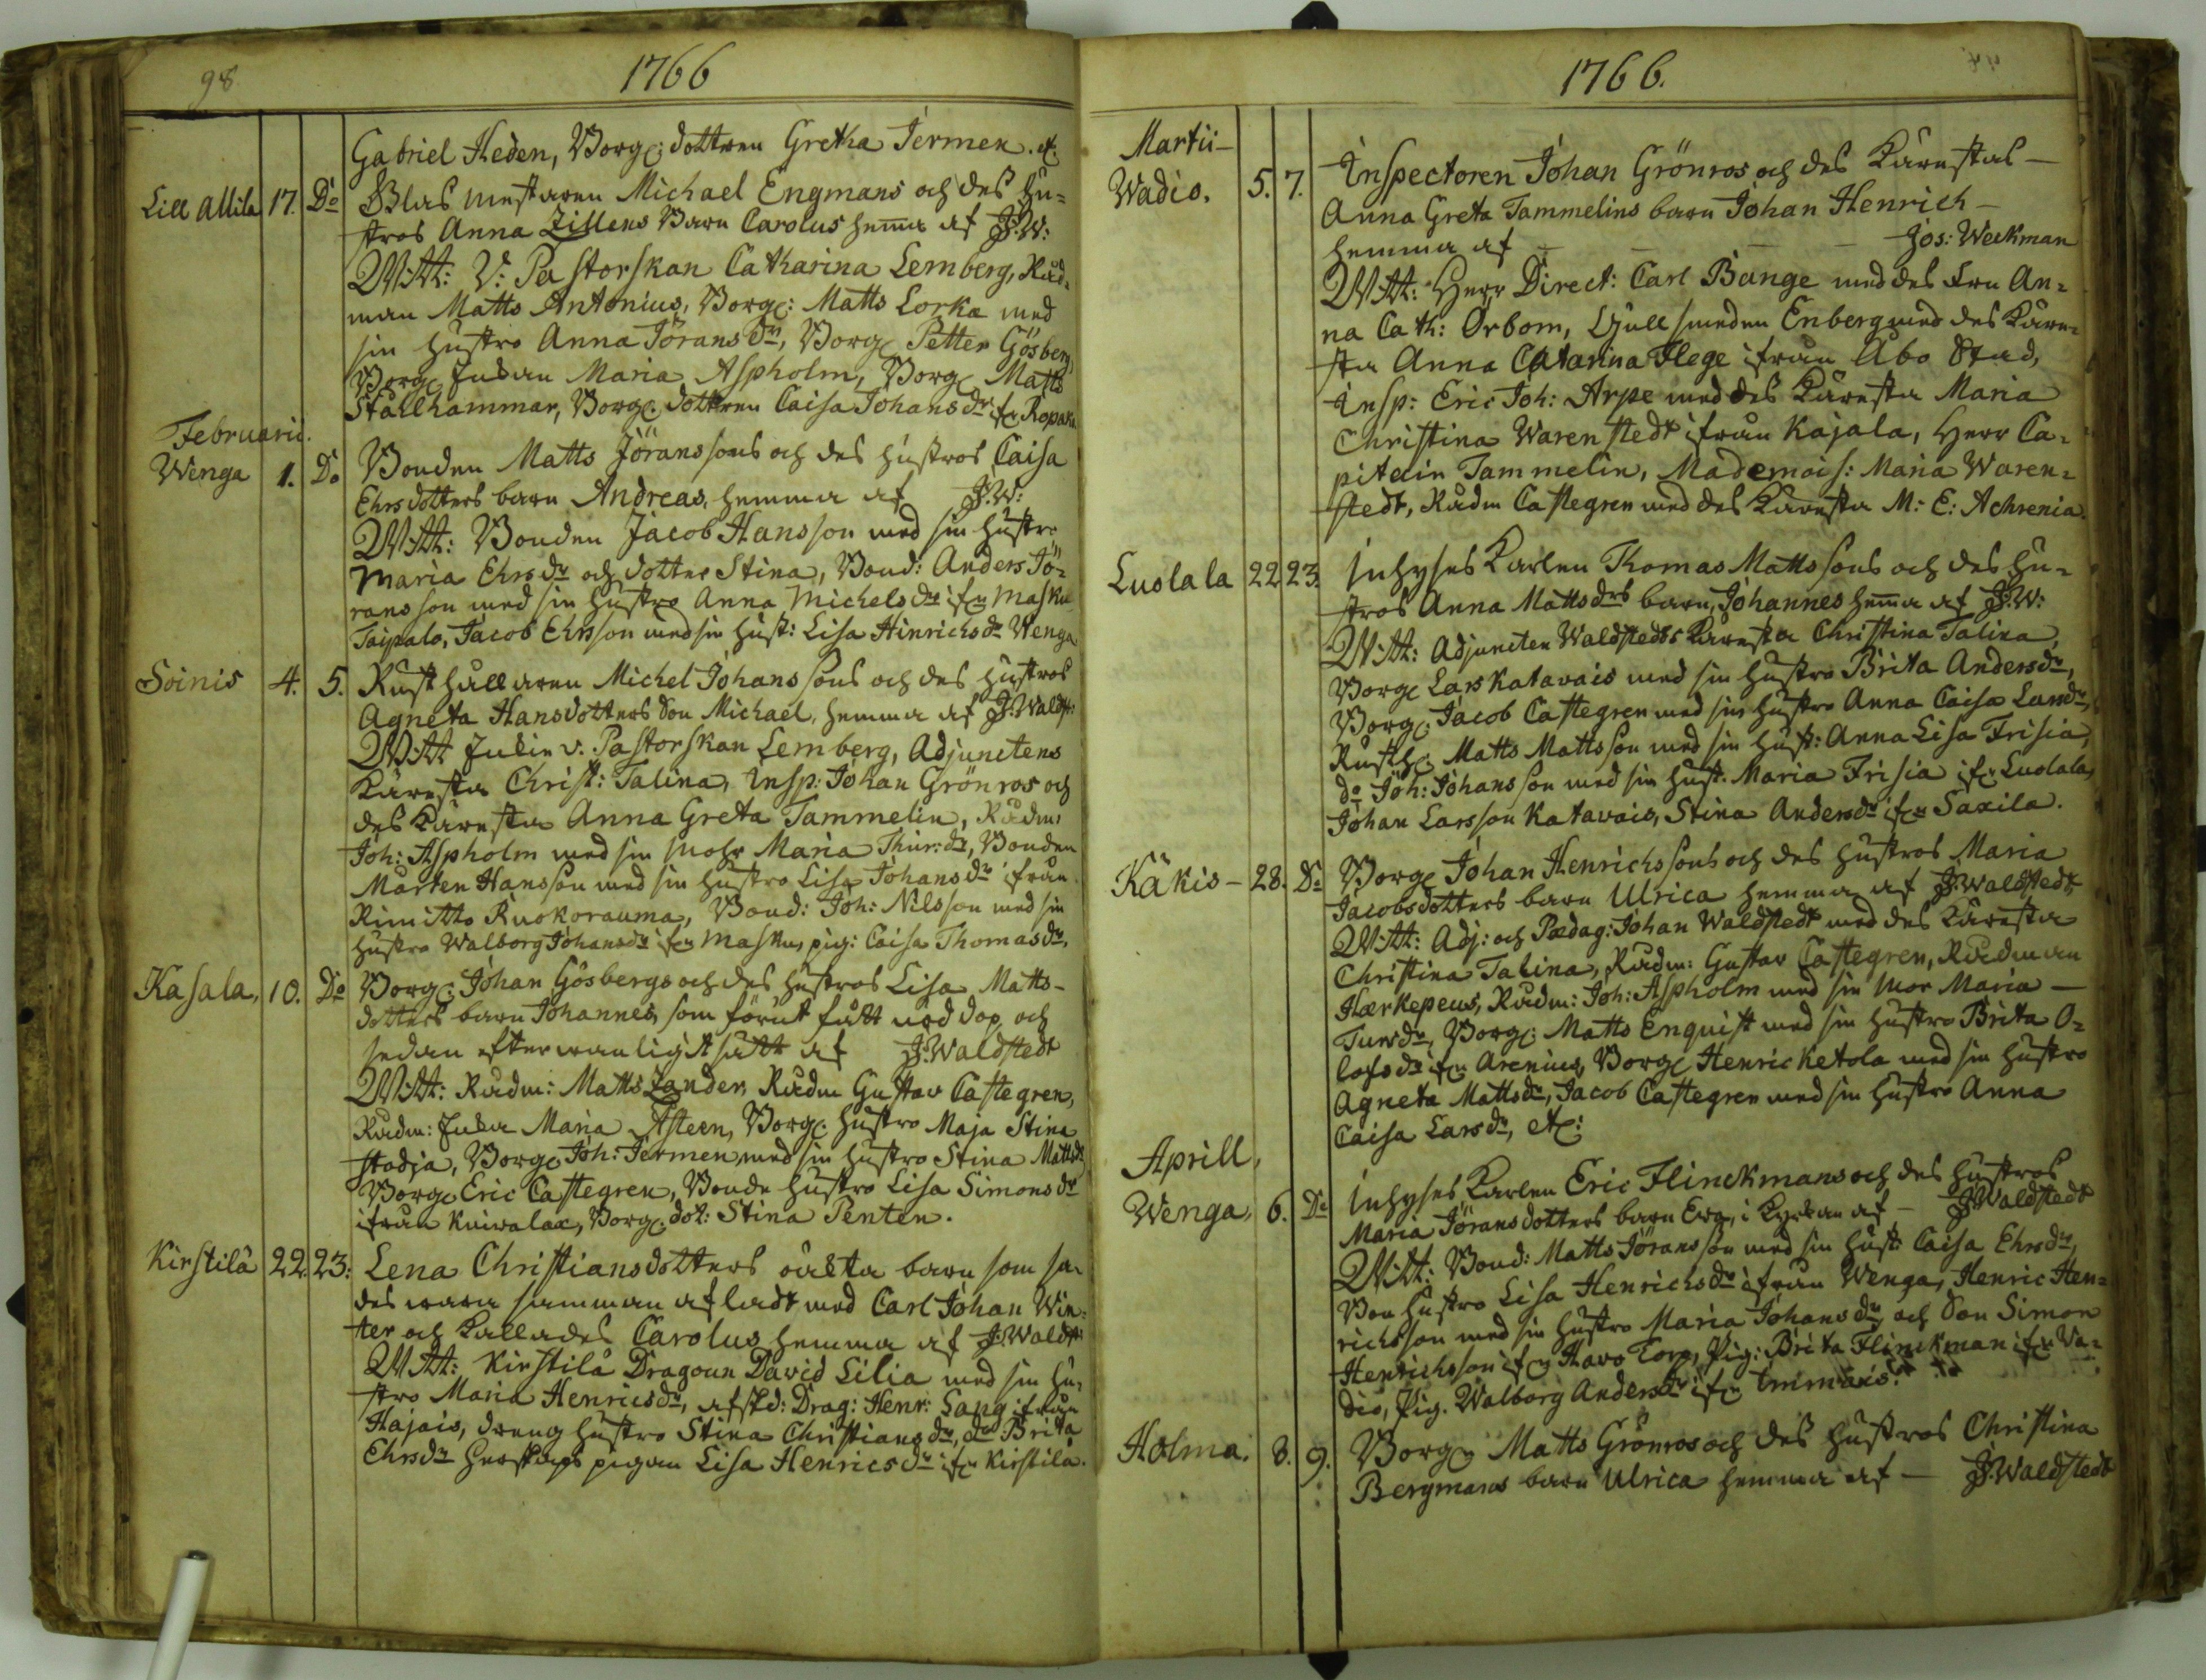 98.
1766
Gabriel Heden, Borg: dottren Gretha Jermen. etc
Lill Allila 17. Do Glas mestaren Michael Engmans och des hu=
stros Anna Zillens Barn Carolus hema af J.W:
Witt: V: Pastorskan Catharina Lemberg, Råd=
man Matts Antonius, Borg: Matts Lorka med
sin hustro Anna Jöransdr, Borg Petter Gösberg,
Borg Enkan Maria Aspholm, Borg Matts
Stålhammar, Borg: dottren Caisa Johansdr
Februarii.
Wenga 1. Do Bonden Matts Jöranssons och des hustros Caisa
Ehrsdotters barn Andreas, hemma af J.W:
Witt: Bonden Jacob Hansson med sin hustro
Maria Ehrsdr och dotter Stina, Bond: Anders Jö=
ransson med sin hustro Anna Michelsdr ifrn Masku
Taipalo, Jacob Ehrsson med sin hust: Lisa Hinrichsdr Wenga
Soinis 4. 5. Rusthållaren Michel Johanssons och des hustros
Agneta Hansdotters Son Michael, hemma af J:Waldst:
Witt v. Pastorskan Lemberg, Adjunctens
Käresta Christ: Talina, Insp: Johan Grönros och
des Käresta Anna Greta Tammelin, Rådm:
Joh: Aspholm med sin Mohr Maria Thur:dr, Bonden
Mårten Hansson med sin hustro Lisa Johansdr ifrån
Rimitto Ruokorauma, Bond: Joh: Nilsson med sin
hustro Walborg Johansdr ifrn Masku, pig: Caisa Thomasdr,
Kasala, 10. Do Borg: Johan Gösbergs och des hustros Lisa Matts=
dotters barn Johannes, som förut fått nöd dop och
sedan efter wanligit sätt af J:Waldstedt
Witt: Rådm: Matts Zander, Rådm Gustav Castegren,
Rådm: Enka Maria Asteen, Borg: hustro Maja Stina
Stadja, Borg Joh: Jermen, med sin hustro Stina Mattsdr
Borg Eric Castegren, Bonde hustro Lisa Simonsdr
ifrån Kuiwalax, Borg: dot: Stina Penten.
Kirstilä 22. 23: Lena Christiansdotters oäkta barn som sa=
des wara samman afladt med Carl Johan Win=
ter och Kallades Carolus hemma af J:Waldst:
Witt: Kirstilä Dragoun David Lilia med sin hu=
stro Maria Henricsdr, afskd: Drag: Henr: Lang ifrån
Hajais, dreng hustro Stina Christiansdr, do Brita
Ehrsdr herskaps pigan Lisa Henricsdr ifrn Kirstilä.
1766.
Martii-
Wadio. 5. 7. Inspectoren Johan Grönros och des Kärestas -
Anna Greta Tammelins barn Johan Henrich -
hemma af - - - - Jos: Weckman
Witt: Herr Direct: Carl Bange med des Fru An=
na Cath: Orbom, Gullsmeden Enberg med des Käre=
sta Anna Catarina Flege ifrån Åbo Stad,
Insp: Eric Joh: Arpe med des Käresta Maria
Christina Warenstedt ifrån Kajala, Herr Ca=
pitain Tammelin, Mademois: Maria Waren=
stedt, Rådm Castegren med des Käresta M: E: Achrenia.
Luolala 22 23. Inhyses Karlen Thomas Mattssons och des hu=
stros Anna Mattsdrs barn, Johannes hema af J:W:
Witt: Adjuncten Waldstedts Käresta Christina Talina,
Borg Lars Katavais med sin hustro Brita Andersdr,
Borg: Jacob Castegren med sin hustro Anna Caisa Larsdr,
Rusth: Matts Mattsson med sin hust: Anna Lisa Frisia,
do Joh: Johansson med sin hust. Maria Frisia ifr Luolala,
Johan Larsson Katavais, Stina Andersdr ifrn Saxila.
Käkis - 28. Do Borg Johan Henrichssons och des hustros Maria
Jacobsdotters barn Ulrica hemma af J:Waldstedt
Witt: Adj: och Pædag: Johan Waldstedt med des Käresta
Christina Talina, Rådm: Gustav Castegren, Rådman
Hærkepeus, Rådm: Joh: Aspholm med sin Mor Maria -
Tursdr, Borg: Matts Enquist med sin hustro Brita O=
lofsdr ifrn Arenius, Borg Henric Ketola med sin hustro
Agneta Mattsdr, Jacob Castegren med sin hustro Anna
Caisa Larsdr, etc:
Aprill,
Wenga, 6. Do Inhyses Karlen Eric Flinckmans och des hustros
Maria Jöransdotters barn Eva, i Kyrkan af - J:Waldstedt
Witt: Bond: Matts Jöransson med sin hust: Caisa Ehrsdr,
Bon hustro Lisa Henrichsdr ifrån Wenga, Henric Hen=
richsson med sin hustro Maria Johansdr och Son Simon
Henrichsson ifrn Havo Torp, Pig: Brita Flinckman ifrn Va=
dio, Pig. Walborg Andersdr ifrn Immais.
Holma. 8. 9. Borg Matts Grönros och des hustros Christina
Bergmans barn Ulrica hemma af - J:Waldstedt